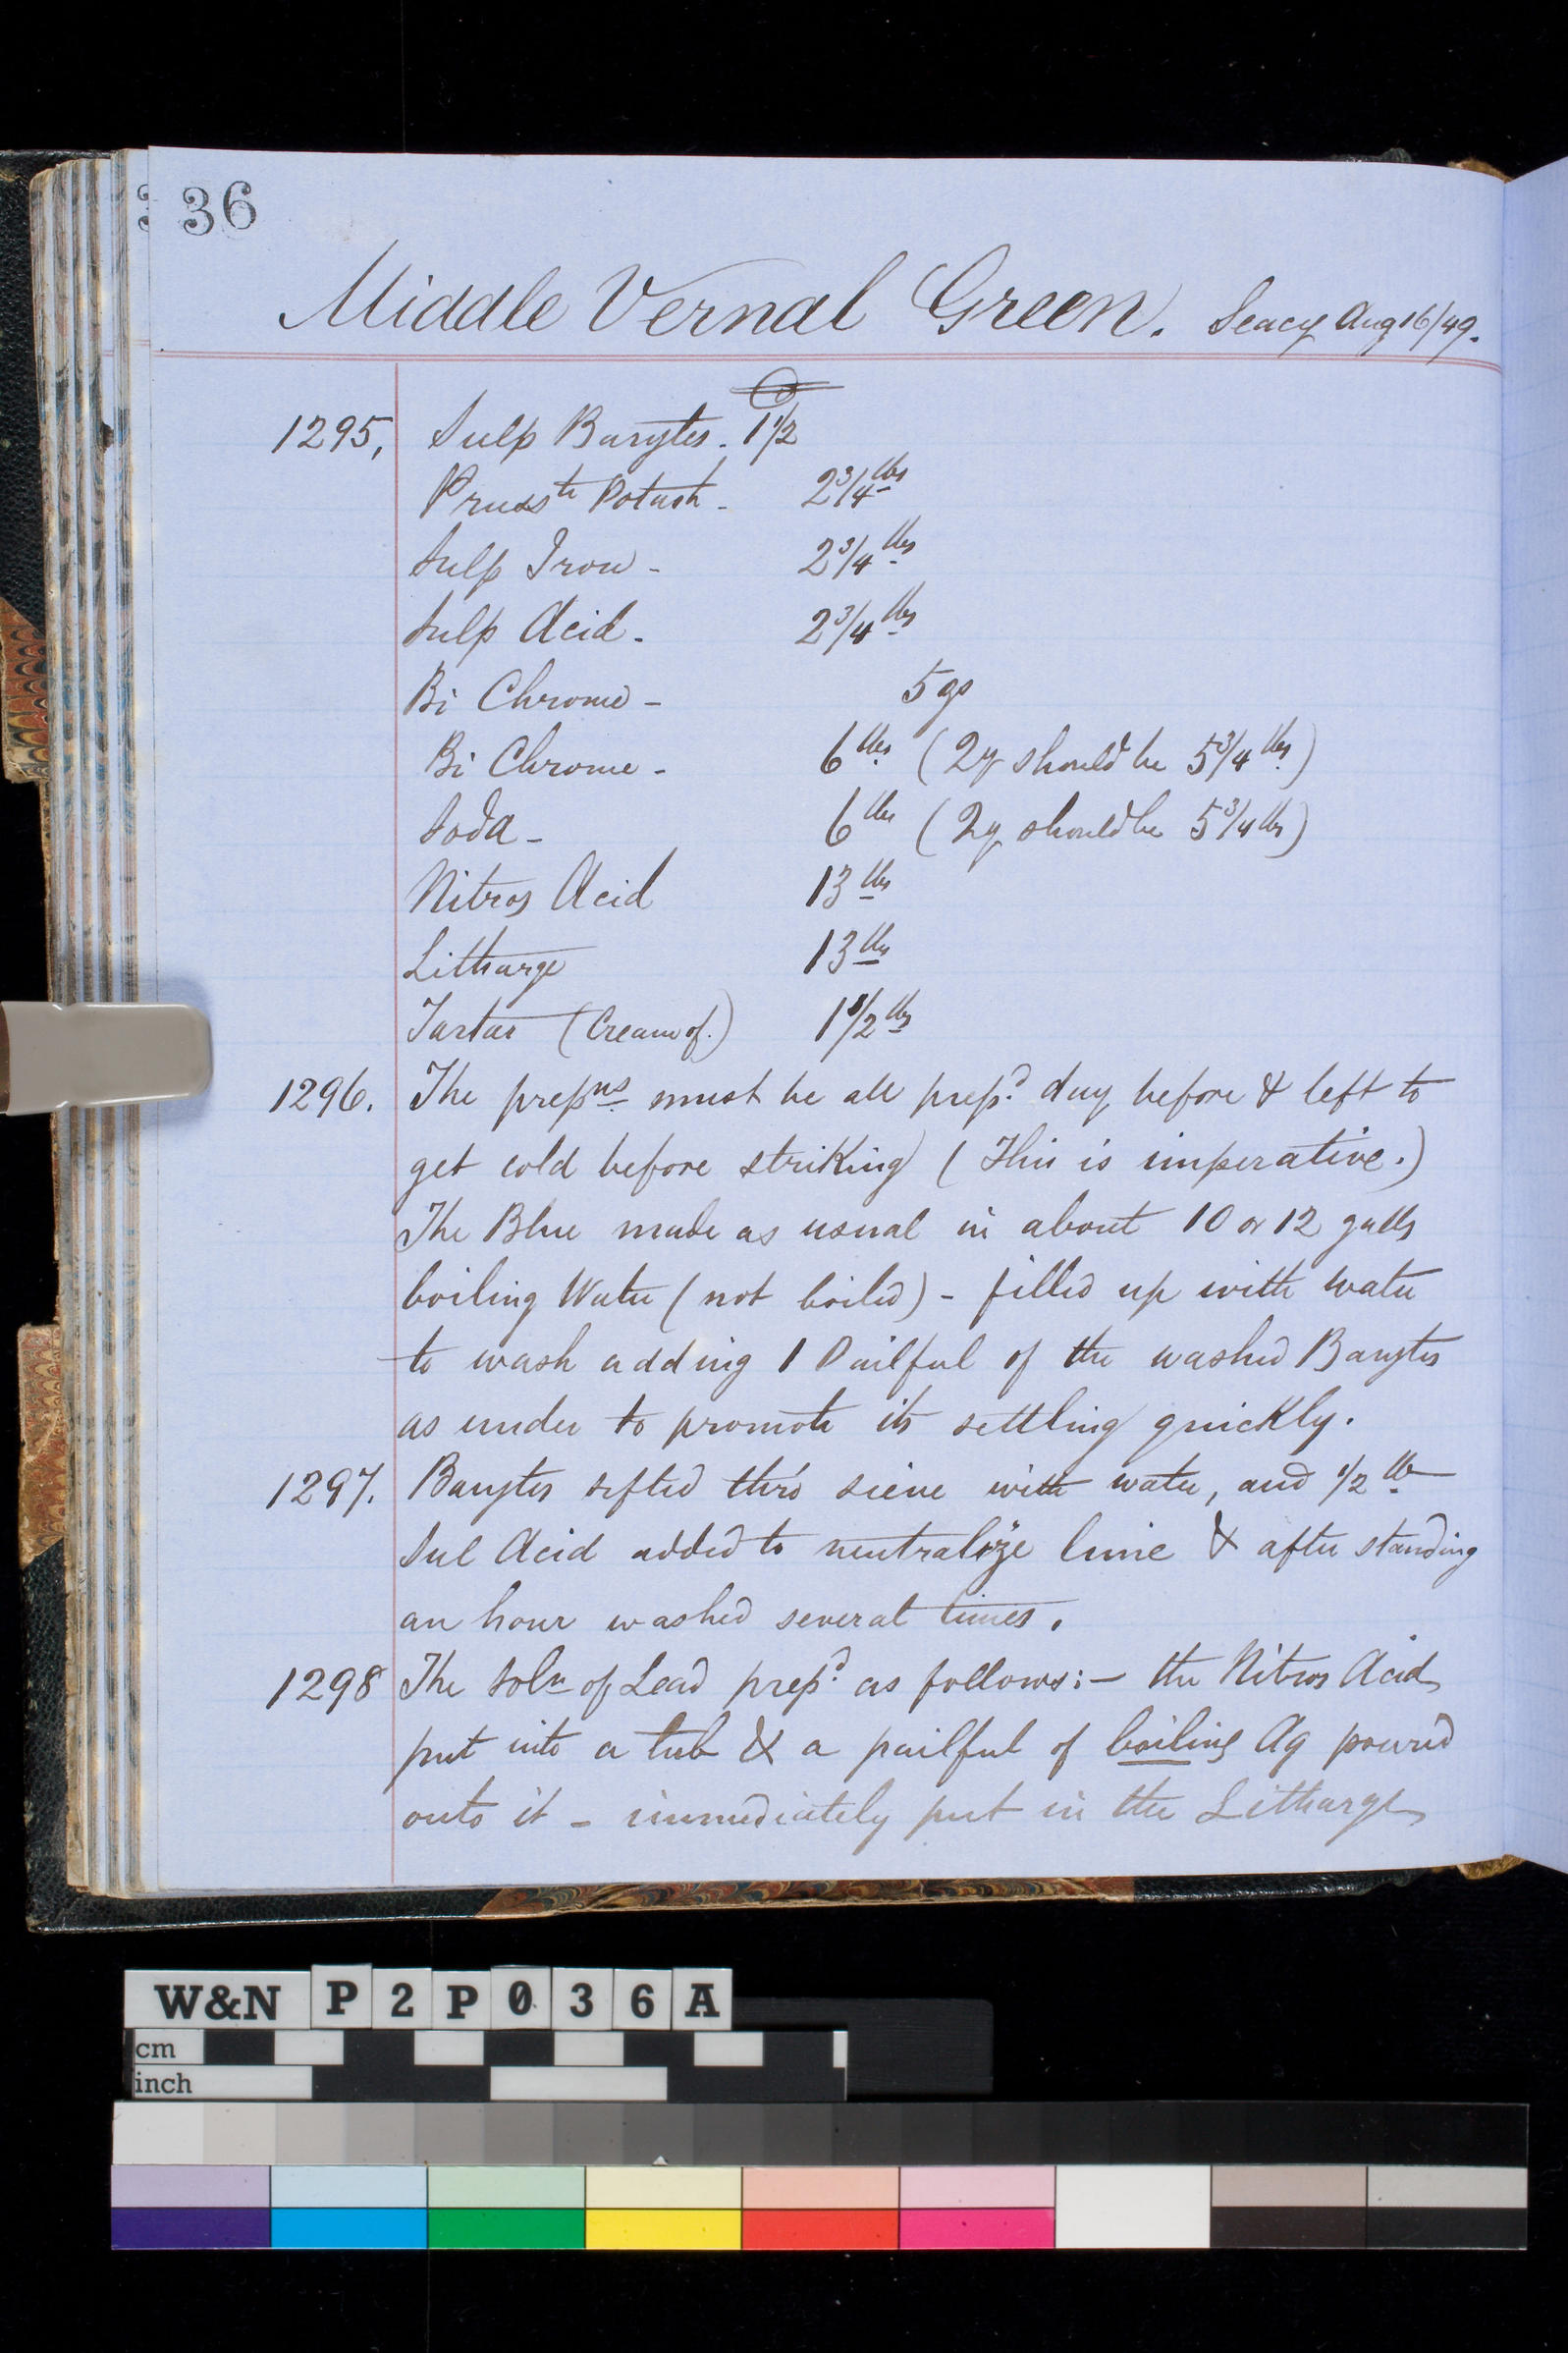 36
Middle Vernal Green. Seacy Aug 16/49.
1295, Sulp Barytes. 1 1/2
Prusste Potash - 2 3/4 lbs
Sulp Iron - 2 3/4 lbs
Sulp Acid. 2 3/4 lbs
Bi Chrome -
Bi Chrome - 6 lbs (2y should be 5 3/4 lbs)
Soda - 6 lbs (2y should be 5 3/4 lbs)
Nitros Acid 13 lbs
Litharge 13 lbs
Tartar (Cream of.) 1 1/2 lbs
1296. The prepns must be all prepd day before & left to
get cold before striking (This is imperative.)
The Blue made as usual in about 10 or 12 galls
boiling Water (not boiled) - filled up with water
to wash adding 1 Pailful of the washed Barytes
as under to promote its settling quickly.
1297. Barytes sifted thro' sieve with water, and 1/2 lb
Sul Acid added to neutralize lime & after standing
an hour washed several times.
1298 The Soln of Lead prepd as follows:- the Nitros Acid
put into a tub & a pailful of boiling Aq poured
onto it - immediately put in the Litharge
W&N P2P036A
cm
inch